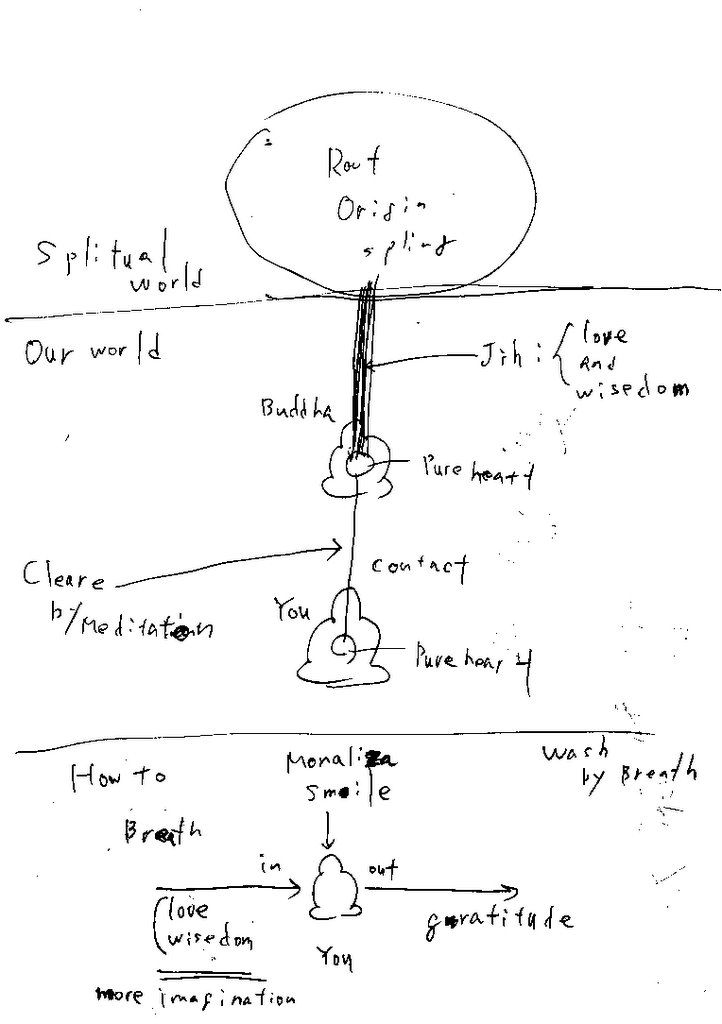 Root
Origin
spling
Splitual
world
Our world
Jih : love
and
wisedom
Buddha
Pure heart
Cleare
by Meditation
contact
You
Pure heart
How to
Breath
Monaliza
smile
Wash
by Breath
in
out
love
wisedom
guratitude
You
more imagination